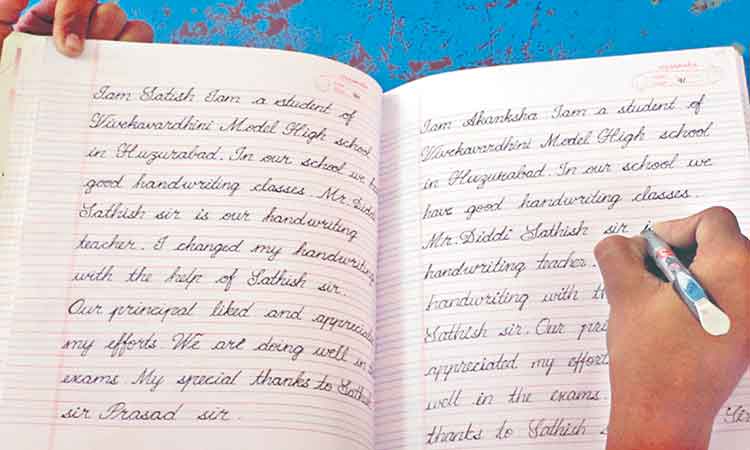 Iam Satish Iam a student of
Vivekavardhini Model High school
in Huzurabad. In our school we
good handwriting classes. Mr. Diddi
Sathish sir is our handwriting
teacher. I changed my handwriting
with the help of Sathish sir.
Our principal liked and appreciated
my efforts We are doing well in
exams. My special thanks to Sathish
sir Prasad sir.
41
Iam Akanksha Iam a student of
Vivekavardhini Model High school
in Huzurabad. In our school we
have good handwriting classes.
Mr. Diddi Sathish sir
handwriting teacher.
handwriting with
Sathish sir. Our
appreciated my
well in the exams.
thanks to Sathish